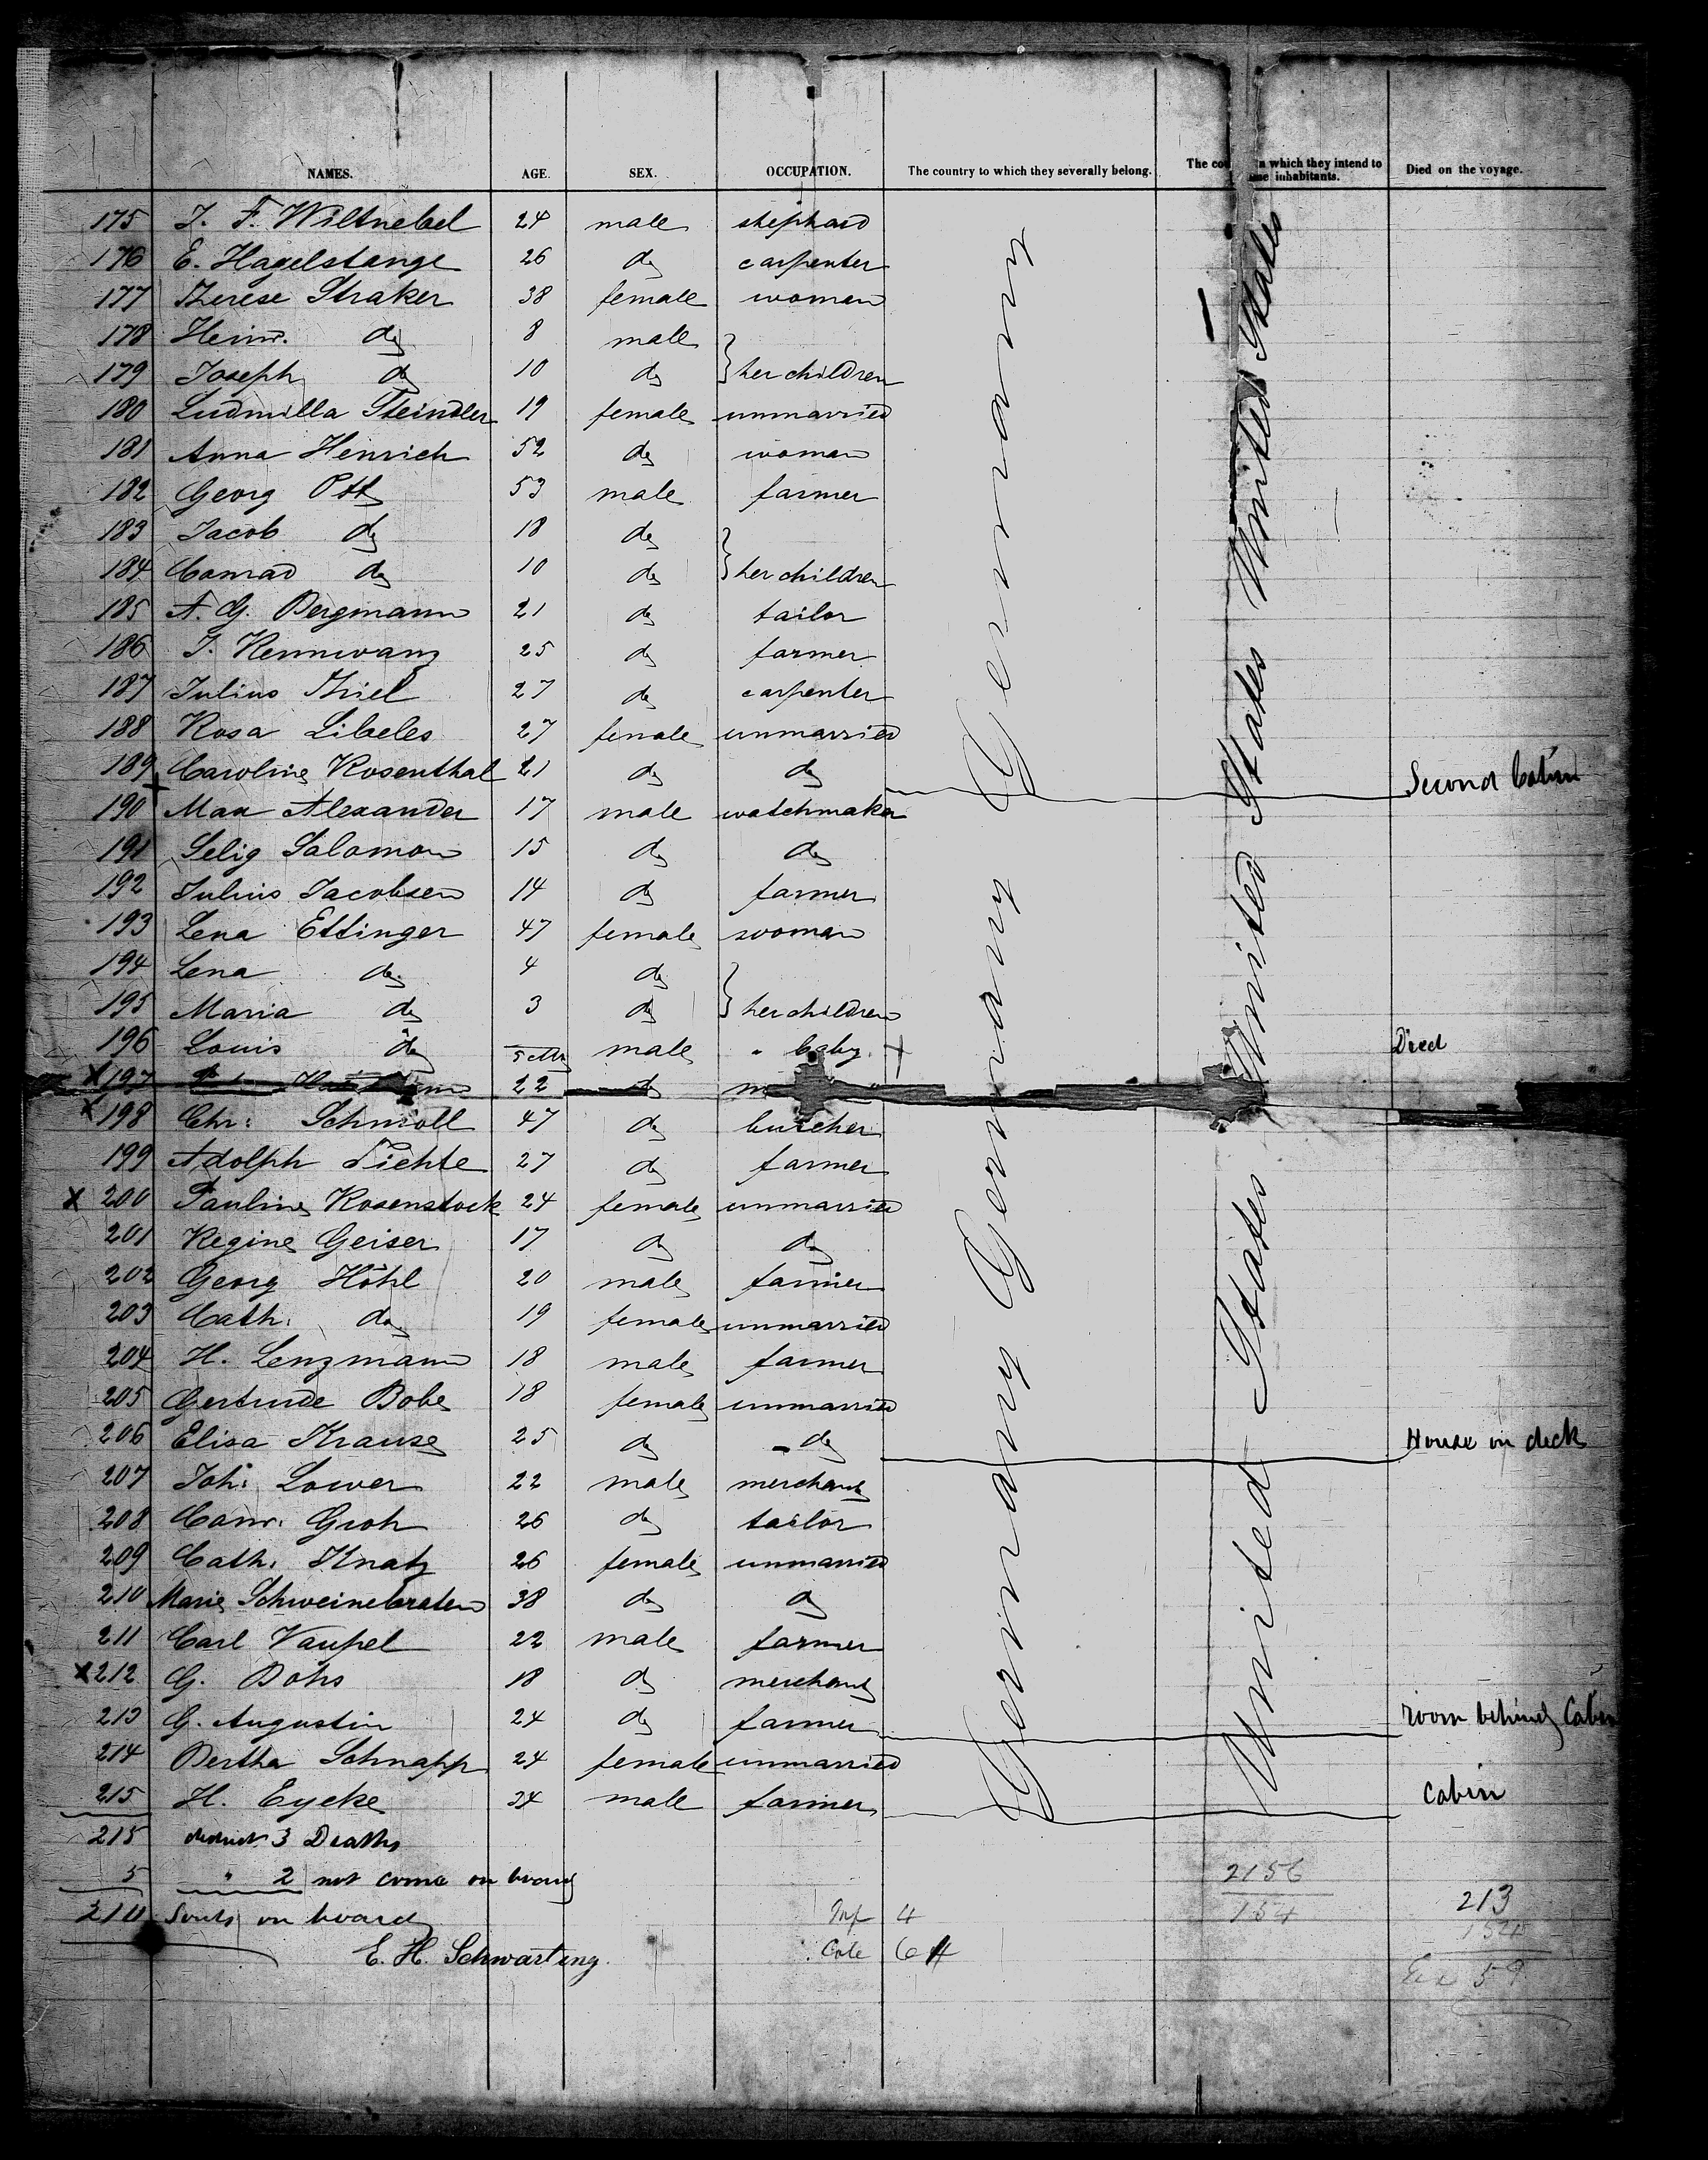 NAMES. AGE. SEX. OCCUPATION. The country to which they severally belong. The cou n which they intend to Died on the voyage.
inhabitants.
175 J. F. Wiltnebel 24 male shephard
176 E. Hagelstange 26 do carpenter
177 Therese Straker 38 female woman
178 Heinr. do 8 male
179 Joseph do 10 do } her children
180 Ludmilla Steindler 19 female unmarried
181 Anna Henrich 52 do woman
182 Georg Ott 53 male farmer
183 Jacob do 18 do
184 Conrad do 10 do } her children
185 A. G. Bergmann 21 do tailor
186 J. Kennwanz 25 do farmer
187 Julius Thiel 27 do carpenter
188 Rosa Libeles 27 female unmarried
189 Caroline Rosenthal 21 do do Second Cabin
190 Max Alexander 17 male watchmaker
191 Selig Salomon 15 do do
192 Julius Jacobsen 14 do farmer
193 Lena Ettinger 47 female woman
194 Lena do 4 do
195 Maria do 3 do } her children
196 Louis do 5 mth male " baby + Died
X 197 22 do
X 198 Chr: Schmoll 47 do butcher
199 Adolph Fichte 27 do farmer
X 200 Pauline Rosenstock 24 female unmarried
201 Regine Geiser 17 do do
202 Georg Höhl 20 male farmer
203 Cath. do 19 female unmarried
204 H. Lenzmann 18 male farmer
205 Gertrude Bobe 18 female unmarried
206 Elisa Krause 25 do do House on deck
207 Joh: Lower 22 male merchant
208 Conr. Groh 26 do tailor
209 Cath. Knatz 26 female unmarried
210 Marie Schweinebraten 38 do do
211 Carl Vaupel 22 male farmer
X 212 G. Dohs 18 do merchant
213 G. Augustin 24 do farmer room behind Cabin
214 Bertha Schnapp 24 female unmarried
215 H. Eycke 34 male farmer Cabin
Germany Germany Germany Germany
United States United States United States
215 deduct. 3 Deaths
5 " 2 not come on board
210 Souls on board
E. H. Schwarting.
Inf 4
64
2156
154
213
154
59